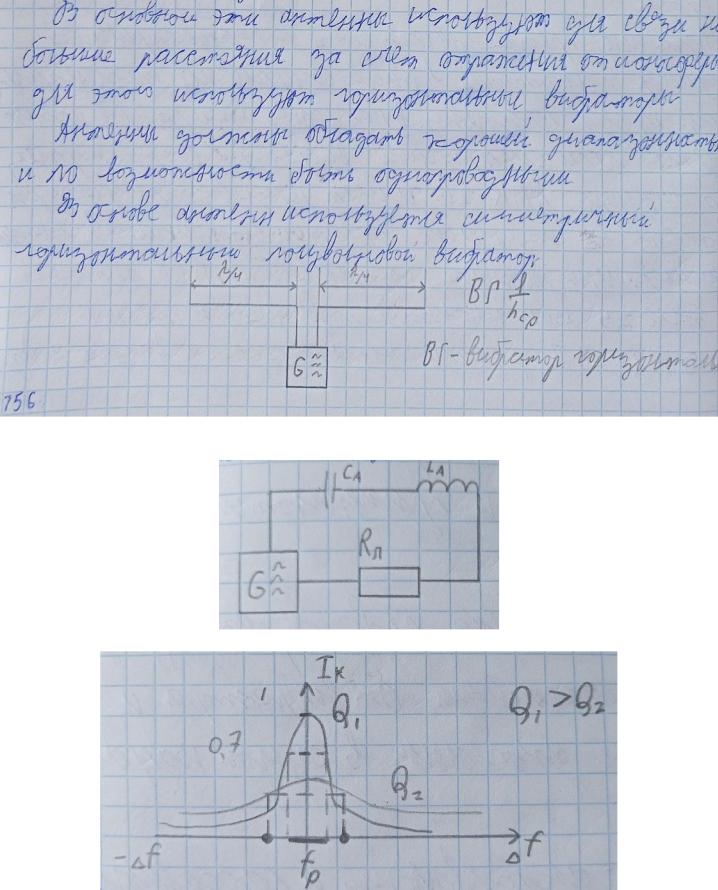 В основном эти антенны используют для связи на
большие расстояния за счет отражения от ионосферы
для этого используют горизонтальные вибраторы
Антенны должны обладать хорошей диапазонностью
и по возможности быть однопроводными
В онове антенн используется симметричный
горизонтального полуволновой вибратор.
λ/4 λ/4
ВГ l/hср
G ≈
ВГ - вибратор горизонталь
156
CA LA
Rл
G ≈
Iк
1 Q1 Q1 > Q2
0,7
Q2
-Δf fp Δf